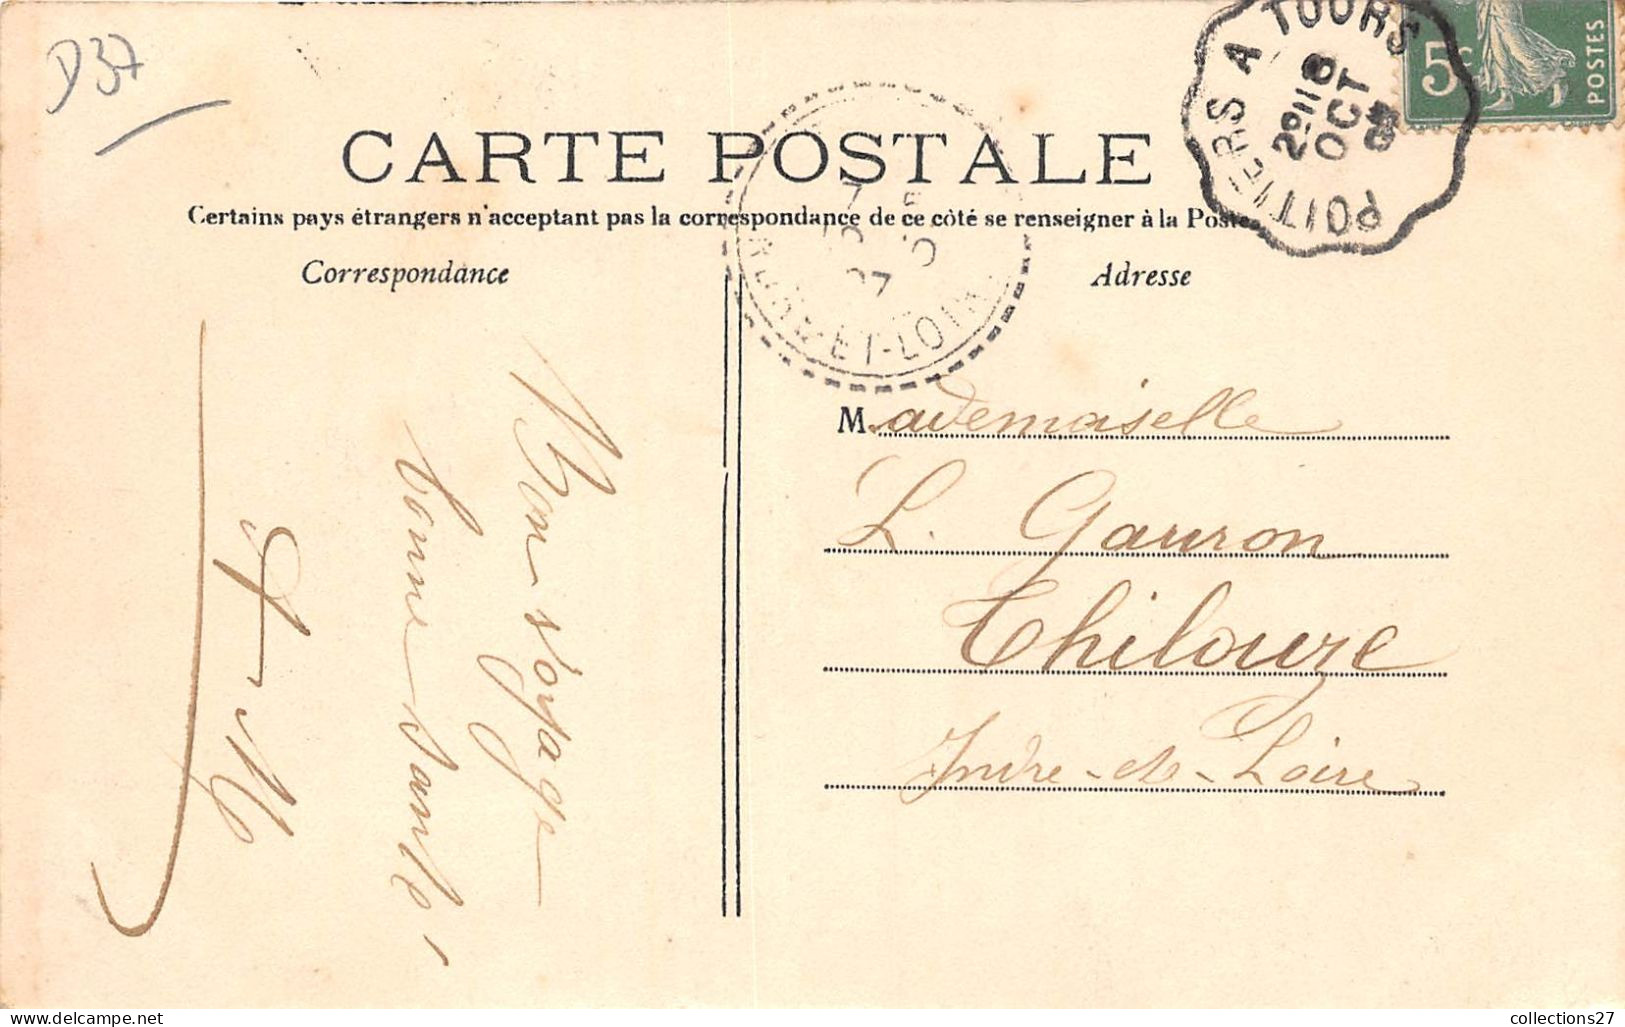 D37
CARTE POSTALE
Certains pays étrangers n'acceptant pas la correspondance de ce côté se renseigner à la Poste
Correspondance
Adresse
POITIERS A TOURS
2º 18
OCT
5c
POSTES
07
ET-LOIRE
Mademoiselle
L. Gauron
Thilouze
Indre-et-Loire
Bon voyage
bonne santé
collections27